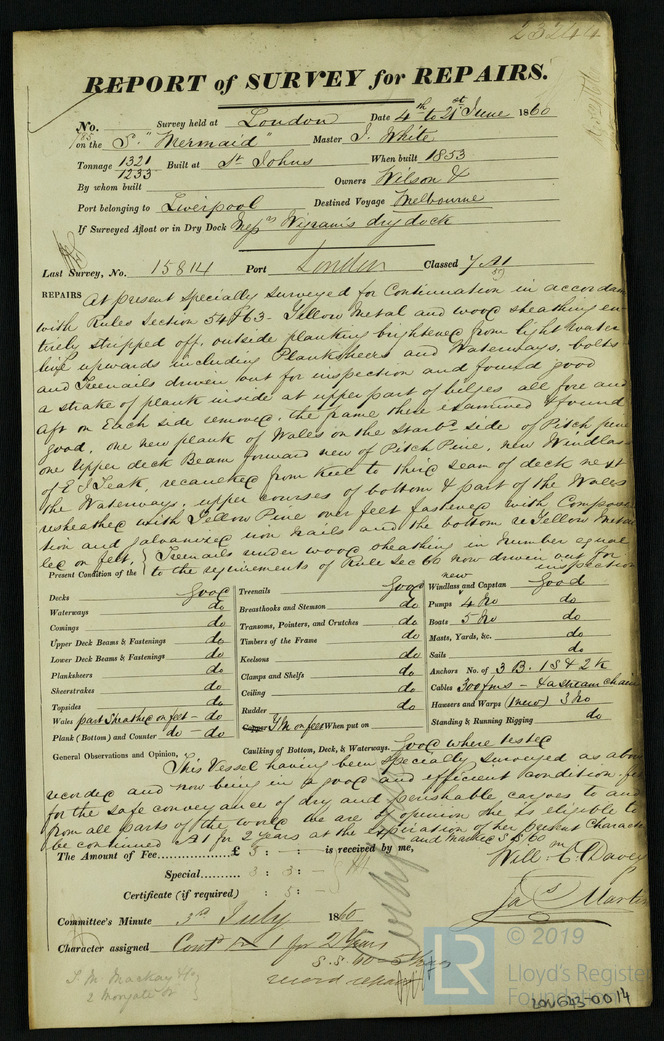 23244
REPORT of SURVEY for REPAIRS.
No. Survey held at London Date 4th to 21st June 1860
on the S. "Mermaid" Master J. White
Tonnage 1321 Built at St Johns When built 1853
1233
By whom built Owners Wilson &
Port belonging to Liverpool Destined Voyage Melbourne
If Surveyed Afloat or in Dry Dock Messrs Wigrams dry dock
Last Survey, No. 15814 Port London Classed 7 A1
REPAIRS At present Specially Surveyed for Continuation in accordan
with Rules Section 54 & 63 - Yellow Metal and wood sheathing en-
tirely stripped off, outside planking brightened from light water
line upwards including Planksheers and Waterways, bolts
and Treenails driven out for inspection and found good
a strake of plank inside at upper part of bilges all fore and
aft on Each side removed, the frame there examined & found
good, one new plank of Wales on the Starbd side of Pitch pine
one Upper deck Beam forward new of Pitch Pine, new Windlass
of E I Teak, recaulked from Keel to third seam of deck next
the Waterways, upper courses of bottom & part of the Wales
resheathed with Yellow Pine over felt fastened with Composi
tion and galvanized iron nails and the bottom reYellow Metal
led on felt, { Treenails under wood sheathing in number equal
to the requirements of Rule Sec 60 now driven out for
inspection
Present Condition of the
Decks good
Waterways do
Comings do
Upper Deck Beams & Fastenings do
Lower Deck Beams & Fastenings do
Planksheers do
Sheerstrakes do
Topsides do
Wales part Sheathed on felt - do
Plank (Bottom) and Counter do - do
Treenails good
Breasthooks and Stemson do
Transoms, Pointers, and Crutches do
Timbers of the Frame do
Keelsons do
Clamps and Shelfs do
Ceiling do
Rudder do
Copper YM on felt When put on
Caulking of Bottom, Deck, & Waterways. good where tested
new
Windlass and Capstan good
Pumps 4 No do
Boats 5 No do
Masts, Yards, &c. do
Sails do
Anchors No. of 3 B. 1 S & 2 K
Cables 300 fms - & a stream chain
Hawsers and Warps (1 new) 3 No
Standing & Running Rigging do
General Observations and Opinion, This Vessel having been specially surveyed as above
recorded and now being in a good and efficient condition fit
for the safe conveyance of dry and perishable cargoes to and
from all parts of the world we are of opinion she is eligible to
be continued A1 for 2 years at the expiration of her present Character
and marked S.S. 60
The Amount of Fee £ 5 : : is received by me,
Special 3 : 3 : -
Certificate (if required) : 5 : -
Willm C. Davey
Jas Martin
Committee's Minute 3rd July 1860
Character assigned Contd A 1 for 2 Years
S.S. 60 - 5 Years
record repairs
J. M. Mackay & Co
2 Moorgate St
LR
© 2019
Lloyd's Register
Foundation
LON643-0014